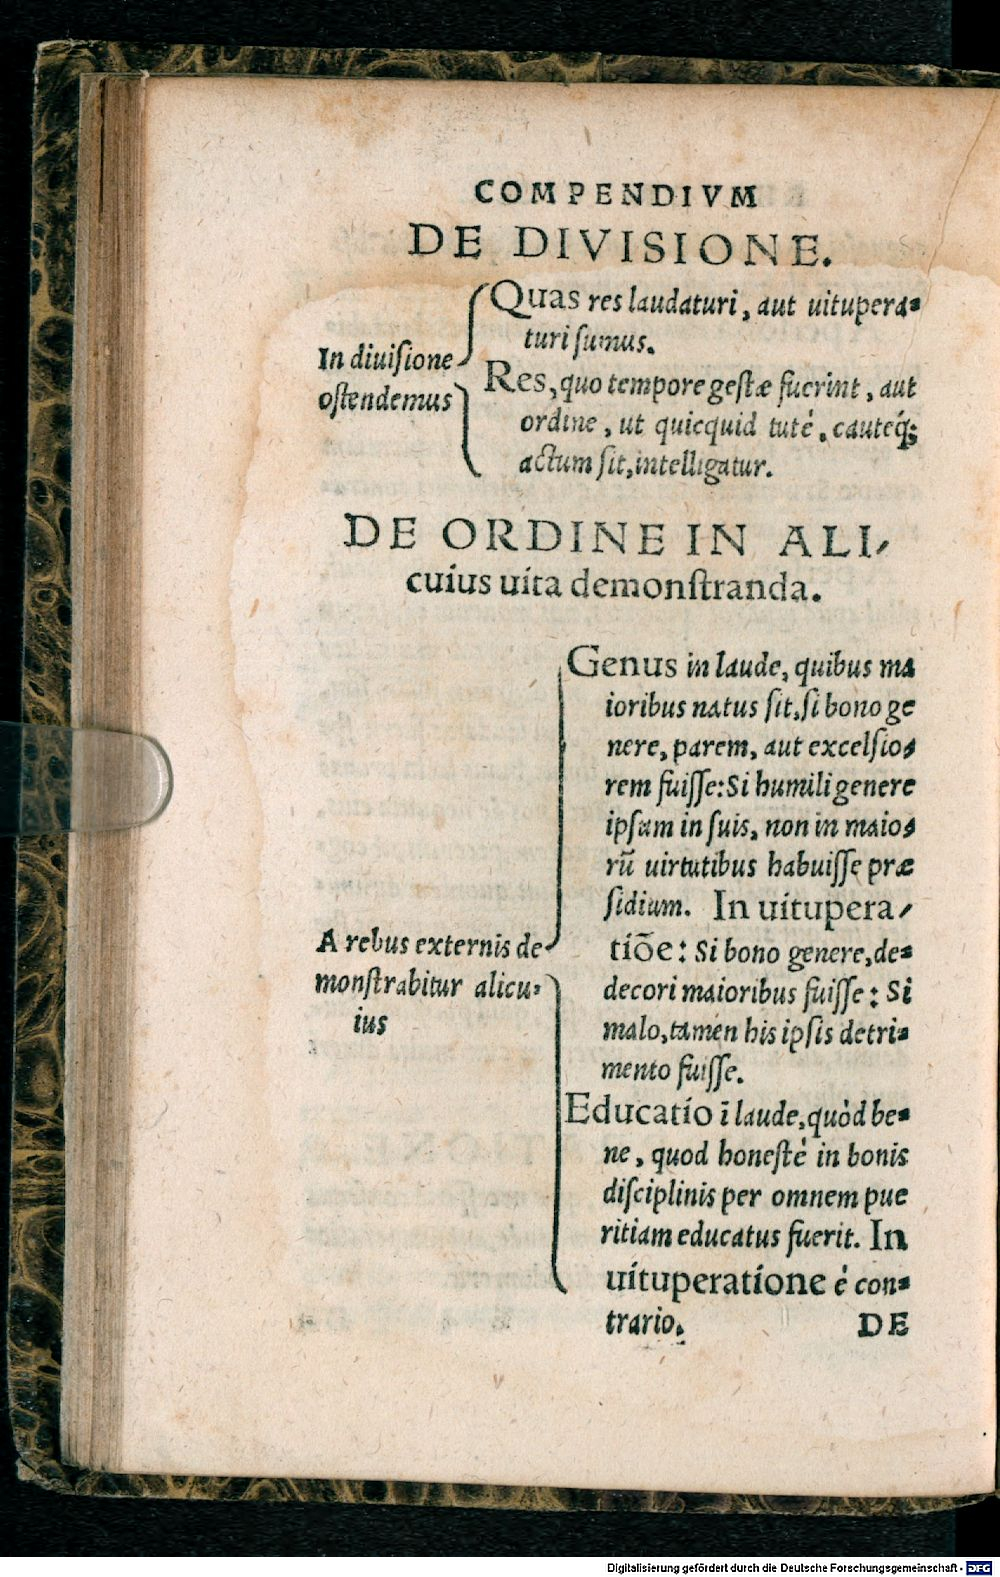 COMPENDIVM
DE DIVISIONE.
In diuiſione
oſtendemus
Quas res laudaturi, aut uitupera-
turi ſumus.
Res, quo tempore geſtæ fuerint, aut
ordine, ut quicquid tutè, cauteq́;
actum ſit, intelligatur.
DE ORDINE IN ALI-
cuius uita demonſtranda.
A rebus externis de
monſtrabitur alicu-
ius
Genus in laude, quibus ma
ioribus natus ſit, ſi bono ge
nere, parem, aut excelſio-
rem fuiſſe: Si humili genere
ipſum in ſuis, non in maio-
rū uirtutibus habuiſſe præ
ſidium. In uitupera-
tiōe: Si bono genere, de-
decori maioribus fuiſſe: Si
malo, tamen his ipſis detri-
mento fuiſſe.
Educatio ī laude, quòd be-
ne, quod honeſtè in bonis
diſciplinis per omnem pue
ritiam educatus fuerit. In
uituperatione è con-
trario.
DE
Digitalisierung gefördert durch die Deutsche Forschungsgemeinschaft - DFG